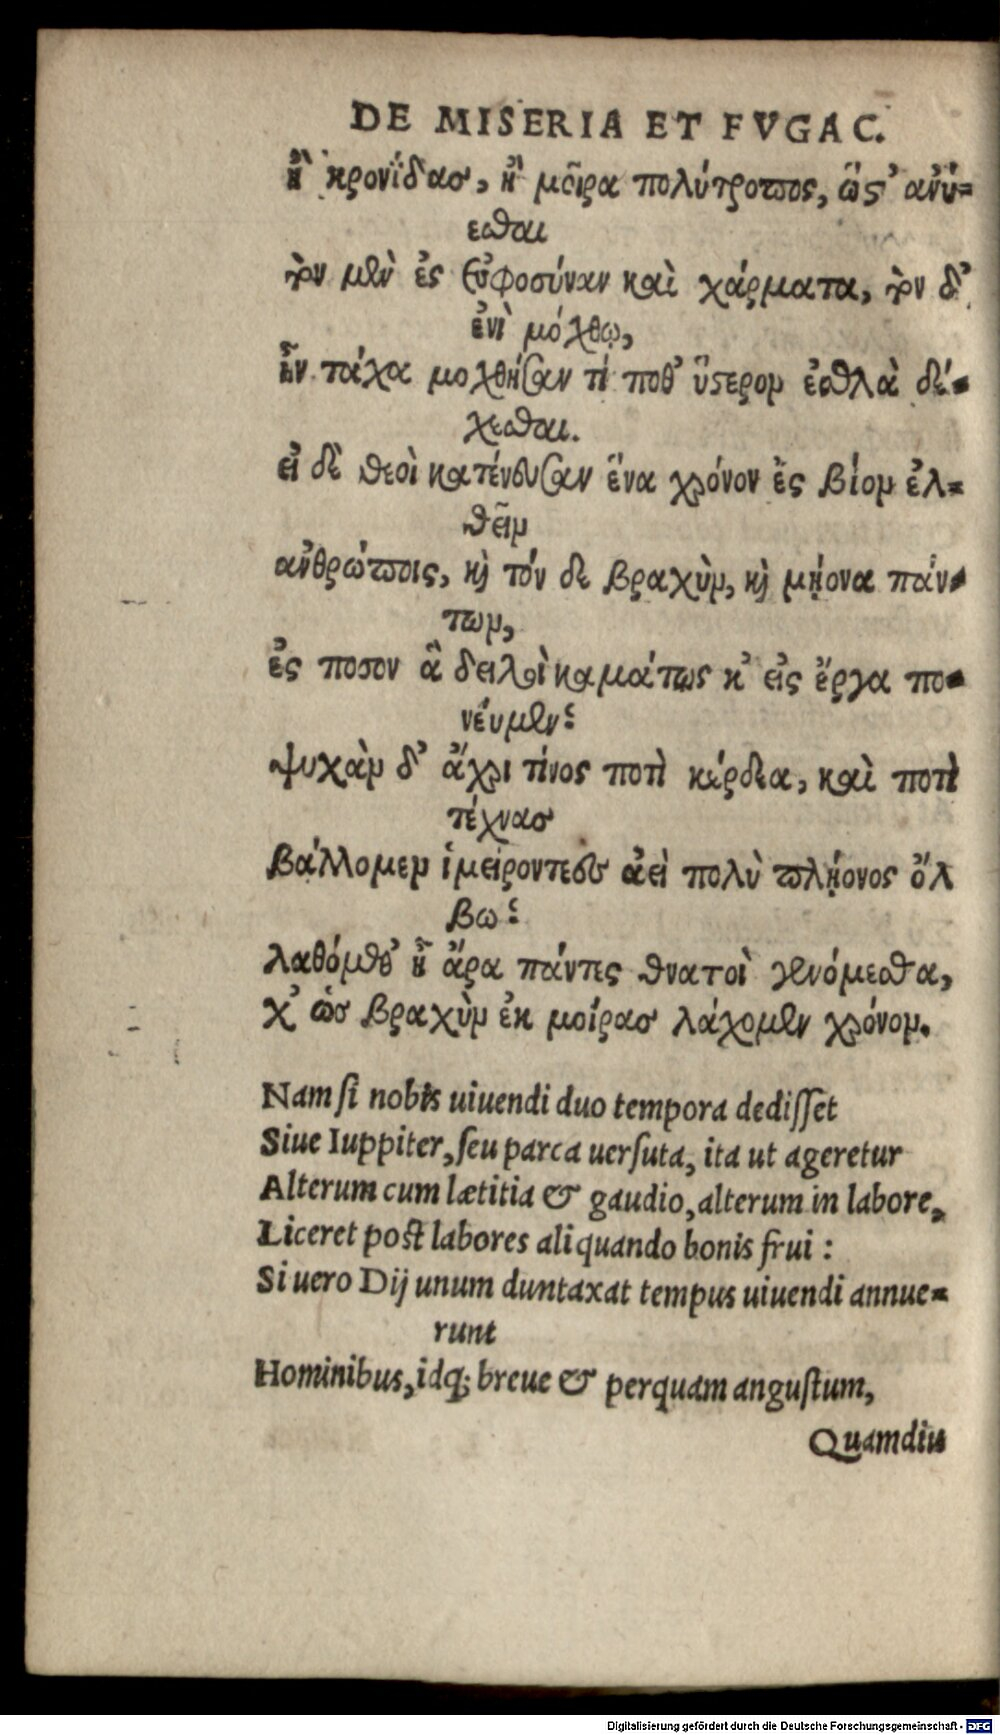 DE MISERIA ET FVGAC.
ἢ κρονίδας, ἢ μοῖρα πολύτροπος, ὥστ’ ἀνύ-
εσθαι
τὸν μὲν ἐς εὐφοσύναν καὶ χάρματα, τὸν δ’
ἐνὶ μόχθῳ,
ἦν τάχα μοχθήσαν τί ποθ’ ὕστερον ἐσθλὰ δέ-
χεσθαι.
εἰ δὲ θεοὶ κατένευσαν ἕνα χρόνον ἐς βίον ἐλ-
θεῖν
ἀνθρώποις, καὶ τόν δε βραχὺν, καὶ μήονα πάν-
των,
ἐς ποσον ἃ δειλοὶ καμάτως κ’ εἰς ἔργα πο-
νεύμεν;
ψυχὰν δ’ ἄχρι τίνος ποτὶ κέρδεα, καὶ ποτὶ
τέχνας
βάλλομεν ἱμείροντες ἀεὶ πολὺ πλήονος ὄλ
βω;
λαθόμεθ’ ἦ ἄρα πάντες θνατοὶ γενόμεσθα,
χ’ ὡς βραχὺν ἐκ μοίρας λάχομεν χρόνον.
Nam si nobis uiuendi duo tempora dedisset
Siue Iuppiter, seu parca uersuta, ita ut ageretur
Alterum cum lætitia & gaudio, alterum in labore,
Liceret post labores aliquando bonis frui :
Si uero Dij unum duntaxat tempus uiuendi annue-
runt
Hominibus, idq; breue & perquam angustum,
Quamdiu
Digitalisierung gefördert durch die Deutsche Forschungsgemeinschaft - DFG